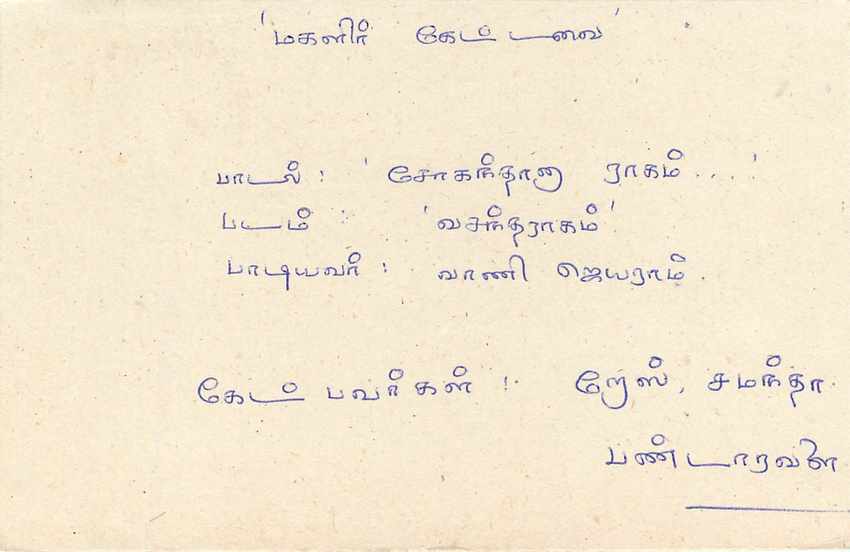 'மகளிர் கேட்டவை'
பாடல் : 'சோகந்தானு ராகம்....'
படம் : 'வசந்தராகம்'
பாடியவர் : வாணி ஜெயராம்.
கேட்பவர்கள் : றேஸ், சமந்தா
பண்டாரவளை